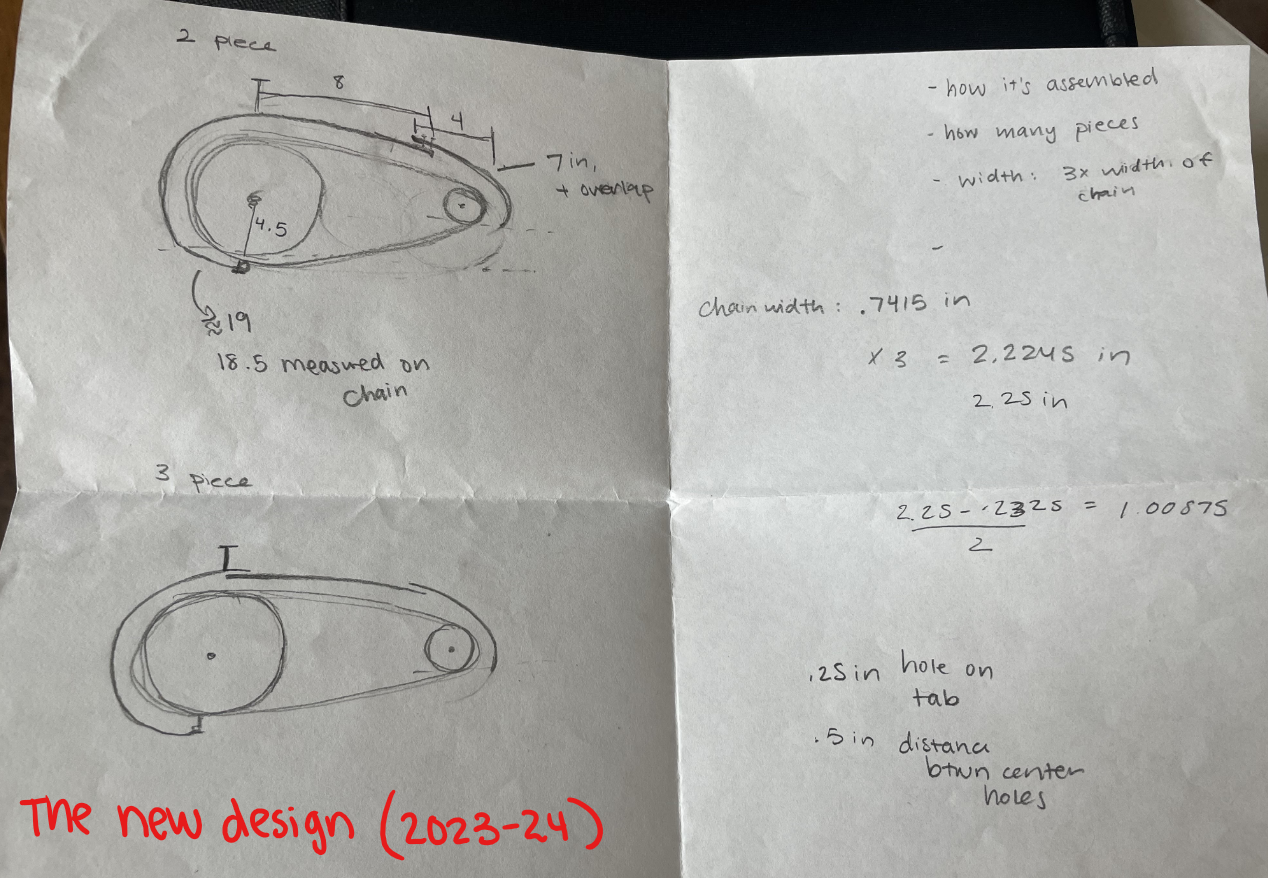 2 piece
8
4
7 in,
+ overlap
4.5
≈19
18.5 measured on
chain
3 piece
The new design (2023-24)
- how it's assembled
- how many pieces
- width: 3x width of
chain
-
Chain width: .7415 in
x 3 = 2.2245 in
2.25 in
2.25 - .2325 = 1.00875
2
.25 in hole on
tab
.5 in distance
btwn center
holes